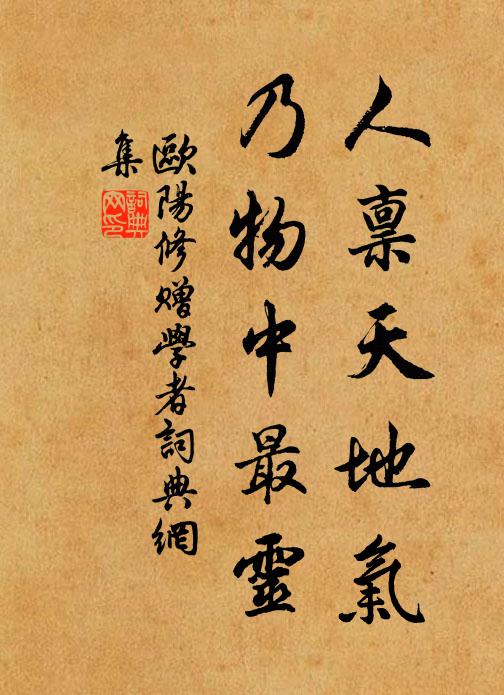 人禀天地氣
乃物中最靈
歐陽修贈學者詞典網
集
詞典网印